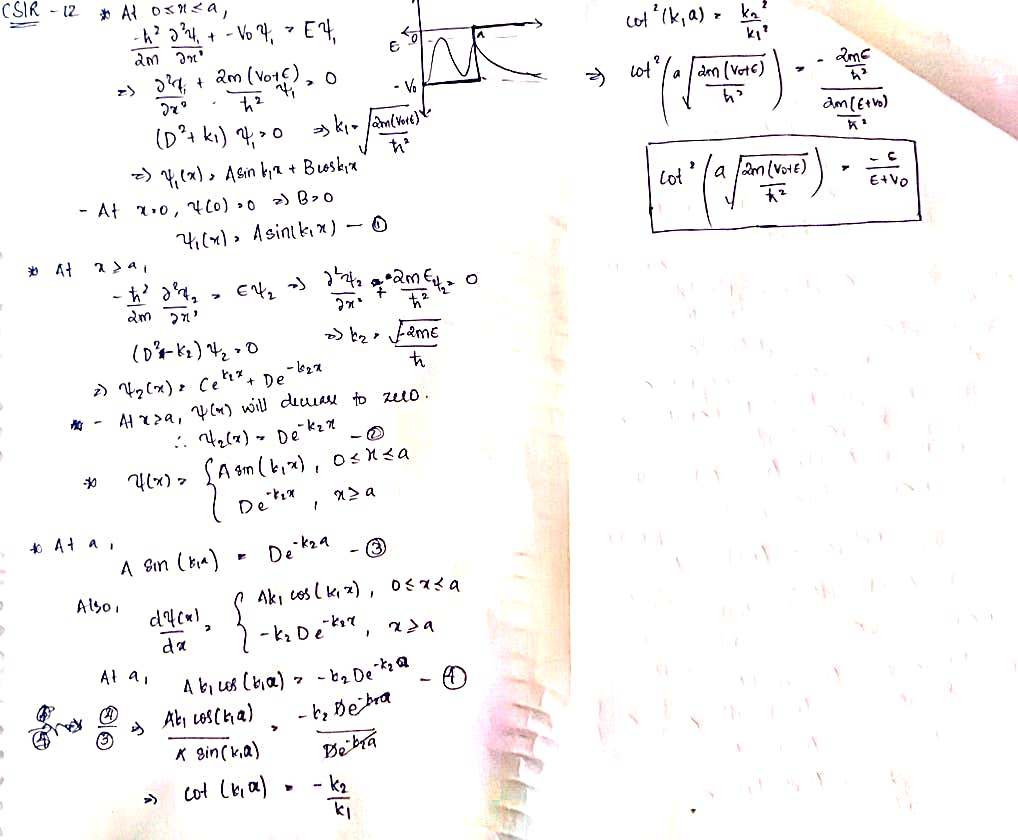 CSIR - 12 * At 0≤x≤a,
-ħ²/2m ∂²ψ₁/∂x² + -V₀ψ₁ = Eψ₁
⇒ ∂²ψ₁/∂x² + 2m(V₀+E)/ħ² ψ₁ = 0
(D²+k₁) ψ₁ = 0 ⇒ k₁ = √(2m(V₀+E)/ħ²)
⇒ ψ₁(x) = A sin k₁x + B cos k₁x
- At x=0, ψ(0)=0 ⇒ B=0
ψ₁(x) = A sin(k₁x) — ①
E 0 a
-V₀
* At x>a,
-ħ²/2m ∂²ψ₂/∂x² = Eψ₂ ⇒ ∂²ψ₂/∂x² + 2mE/ħ² ψ₂ = 0
(D²-k₂) ψ₂ = 0 ⇒ k₂ = √-2mE/ħ
⇒ ψ₂(x) = Ce^{k₂x} + De^{-k₂x}
- At x>a, ψ(x) will decrease to zero.
∴ ψ₂(x) = De^{-k₂x} — ②
* ψ(x) = { A sin(k₁x), 0≤x≤a
De^{-k₂x}, x≥a
* At a,
A sin(k₁a) = De^{-k₂a} — ③
Also, dψ(x)/dx = { Ak₁ cos(k₁x), 0≤x≤a
-k₂De^{-k₂x}, x≥a
At a, Ak₁ cos(k₁a) = -k₂De^{-k₂a} — ④
④/③ ⇒ Ak₁ cos(k₁a)/A sin(k₁a) = -k₂De^{-k₂a}/De^{-k₂a}
⇒ cot(k₁a) = -k₂/k₁
cot²(k₁a) = k₂²/k₁²
⇒ cot²(a√(2m(V₀+E)/ħ²)) = (-2mE/ħ²)/(2m(E+V₀)/ħ²)
cot²(a√(2m(V₀+E)/ħ²)) = -E/(E+V₀)